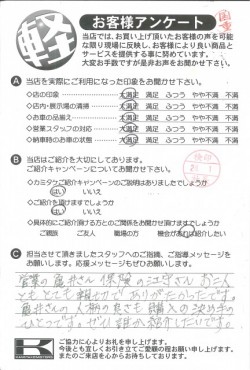 軽
お客様アンケート
当店では、お買い上げ頂いたお客様の声を可能
な限り現場に反映し、お客様により良い商品と
サービスを提供する事に努めています。
大変お手数ですが是非お声をお聞かせ下さい。
A 当店を実際にご利用になった印象をお聞かせ下さい。
◇店の印象 大満足 満足 ふつう やや不満 不満
◇店内・展示場の清掃 大満足 満足 ふつう やや不満 不満
◇お車の品揃え 大満足 満足 ふつう やや不満 不満
◇営業スタッフの対応 大満足 満足 ふつう やや不満 不満
◇納車時のお車の状態 大満足 満足 ふつう やや不満 不満
B 当店はご紹介を大切にしております。
ご紹介キャンペーンについてお聞かせ下さい。
◇カミタケご紹介キャンペーンのご説明はありましたでしょうか
はい いいえ
◇ご紹介を頂けますでしょうか
はい いいえ
◇具体的にご紹介頂ける方とのご関係をお聞かせ頂けますでしょうか
ご親族 ご友人 職場の方 機会があれば紹介したい
C 担当させて頂きましたスタッフへのご指摘、ご指導メッセージを
お願いします。応援メッセージもぜひお願いします。
営業の亀井さん 保険の さん お二人
ともとても親切で ありがたかったです。
亀井さんの人柄の良さも 購入の決め手の
ひとつです。ぜひ 紹介したいです。
K
ご協力に心よりお礼を申し上げます。
今後とも宜しくお引き立てご愛顧の程お願い申し上げます。
またのご来店を心からお待ちしております。